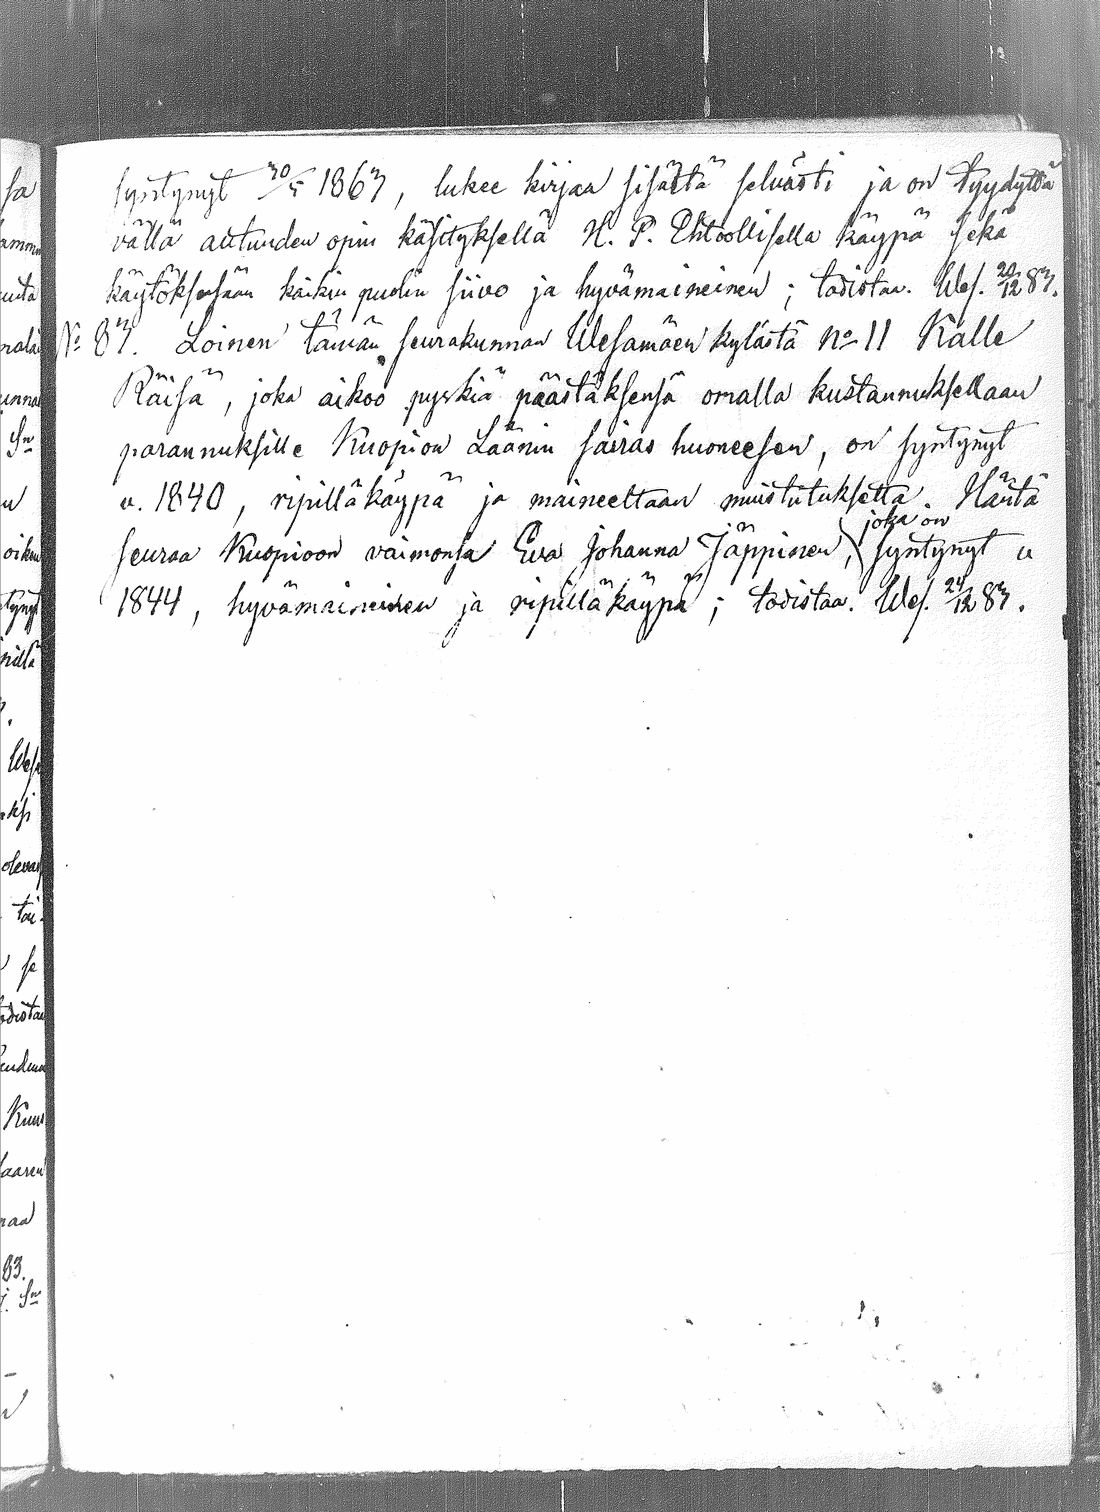 syntynyt 30/5 1863, lukee kirjaa sisältä selvästi ja on tyydyttä
vällä autuuden opin käsityksellä H. P. Ehtoollisella käypä sekä
käytöksensään kaikin puolin siivo ja hyvämaineinen; todistaa. Wes. 20/12 83.
No 83. Loinen tämän seurakunnan Wesamäen kylästä No 11 Kalle
Räisä, joka aikoo pyrkiä päästäksensä omalla kustannuksellaan
parannuksille Kuopion Läänin sairas huoneesen, on syntynyt
v. 1840, ripilläkäypä ja maineeltaan muistutuksetta. Häntä
seuraa Kuopioon vaimonsa Eva Johanna Jäppinen, joka on syntynyt v
1844, hyvämaineinen ja ripilläkäypä; todistaa. Wes. 24/12 83.
sa
uuta
unna
Sn
oikeu
Wesa
ksi
olevas
toi
se
todistaa
Kuus
naa
83.
Sn